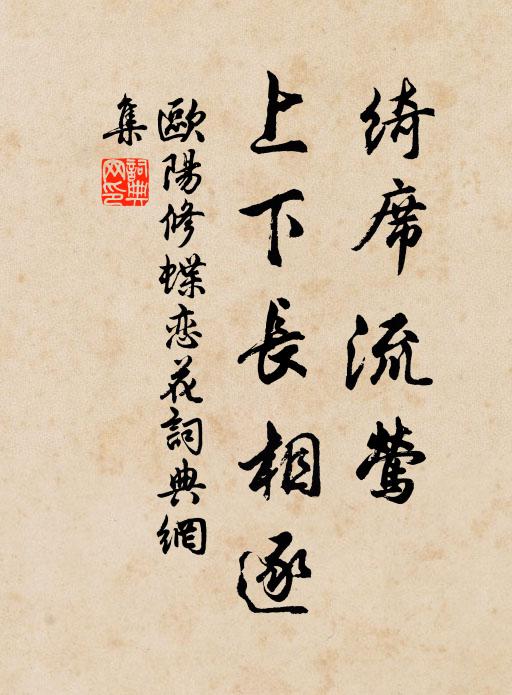 綺席流鶯
上下長相逐
歐陽修蝶恋花詞典網
集
詞典
网印